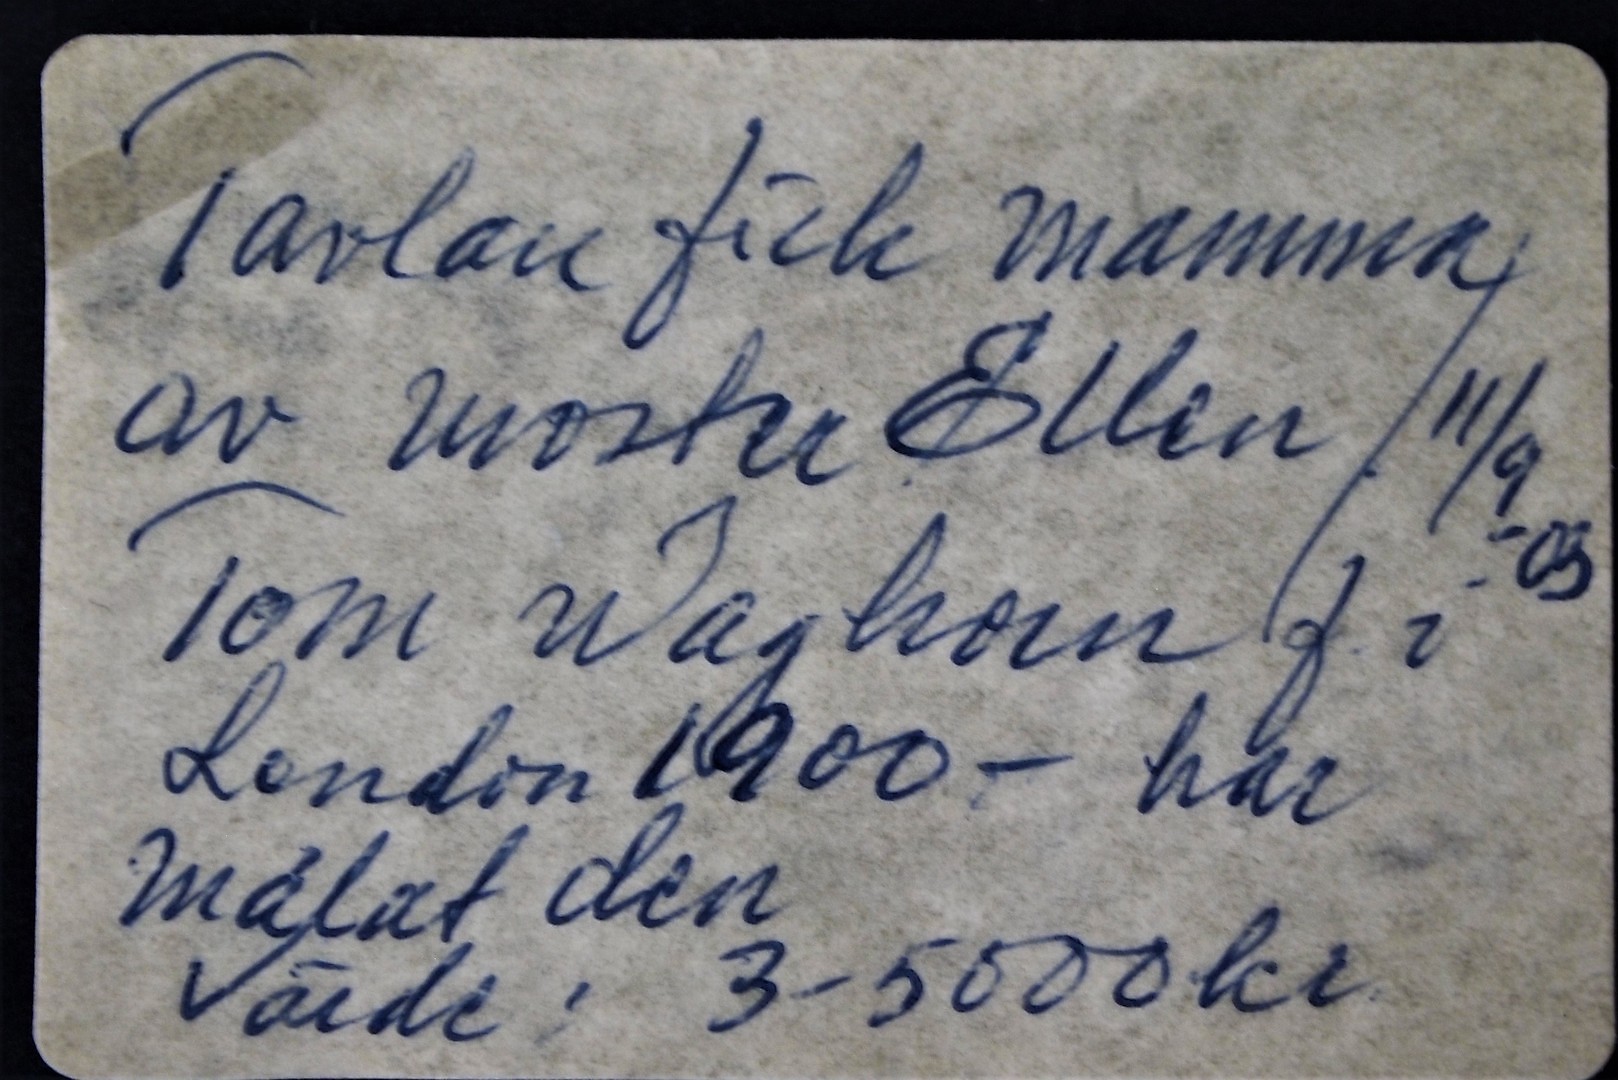 Tavlan fick mamma
av moster Ellen 11/9
-03
Tom Waghorn f. i
London 1900 - har
målat den
Värde: 3-5000 kr.